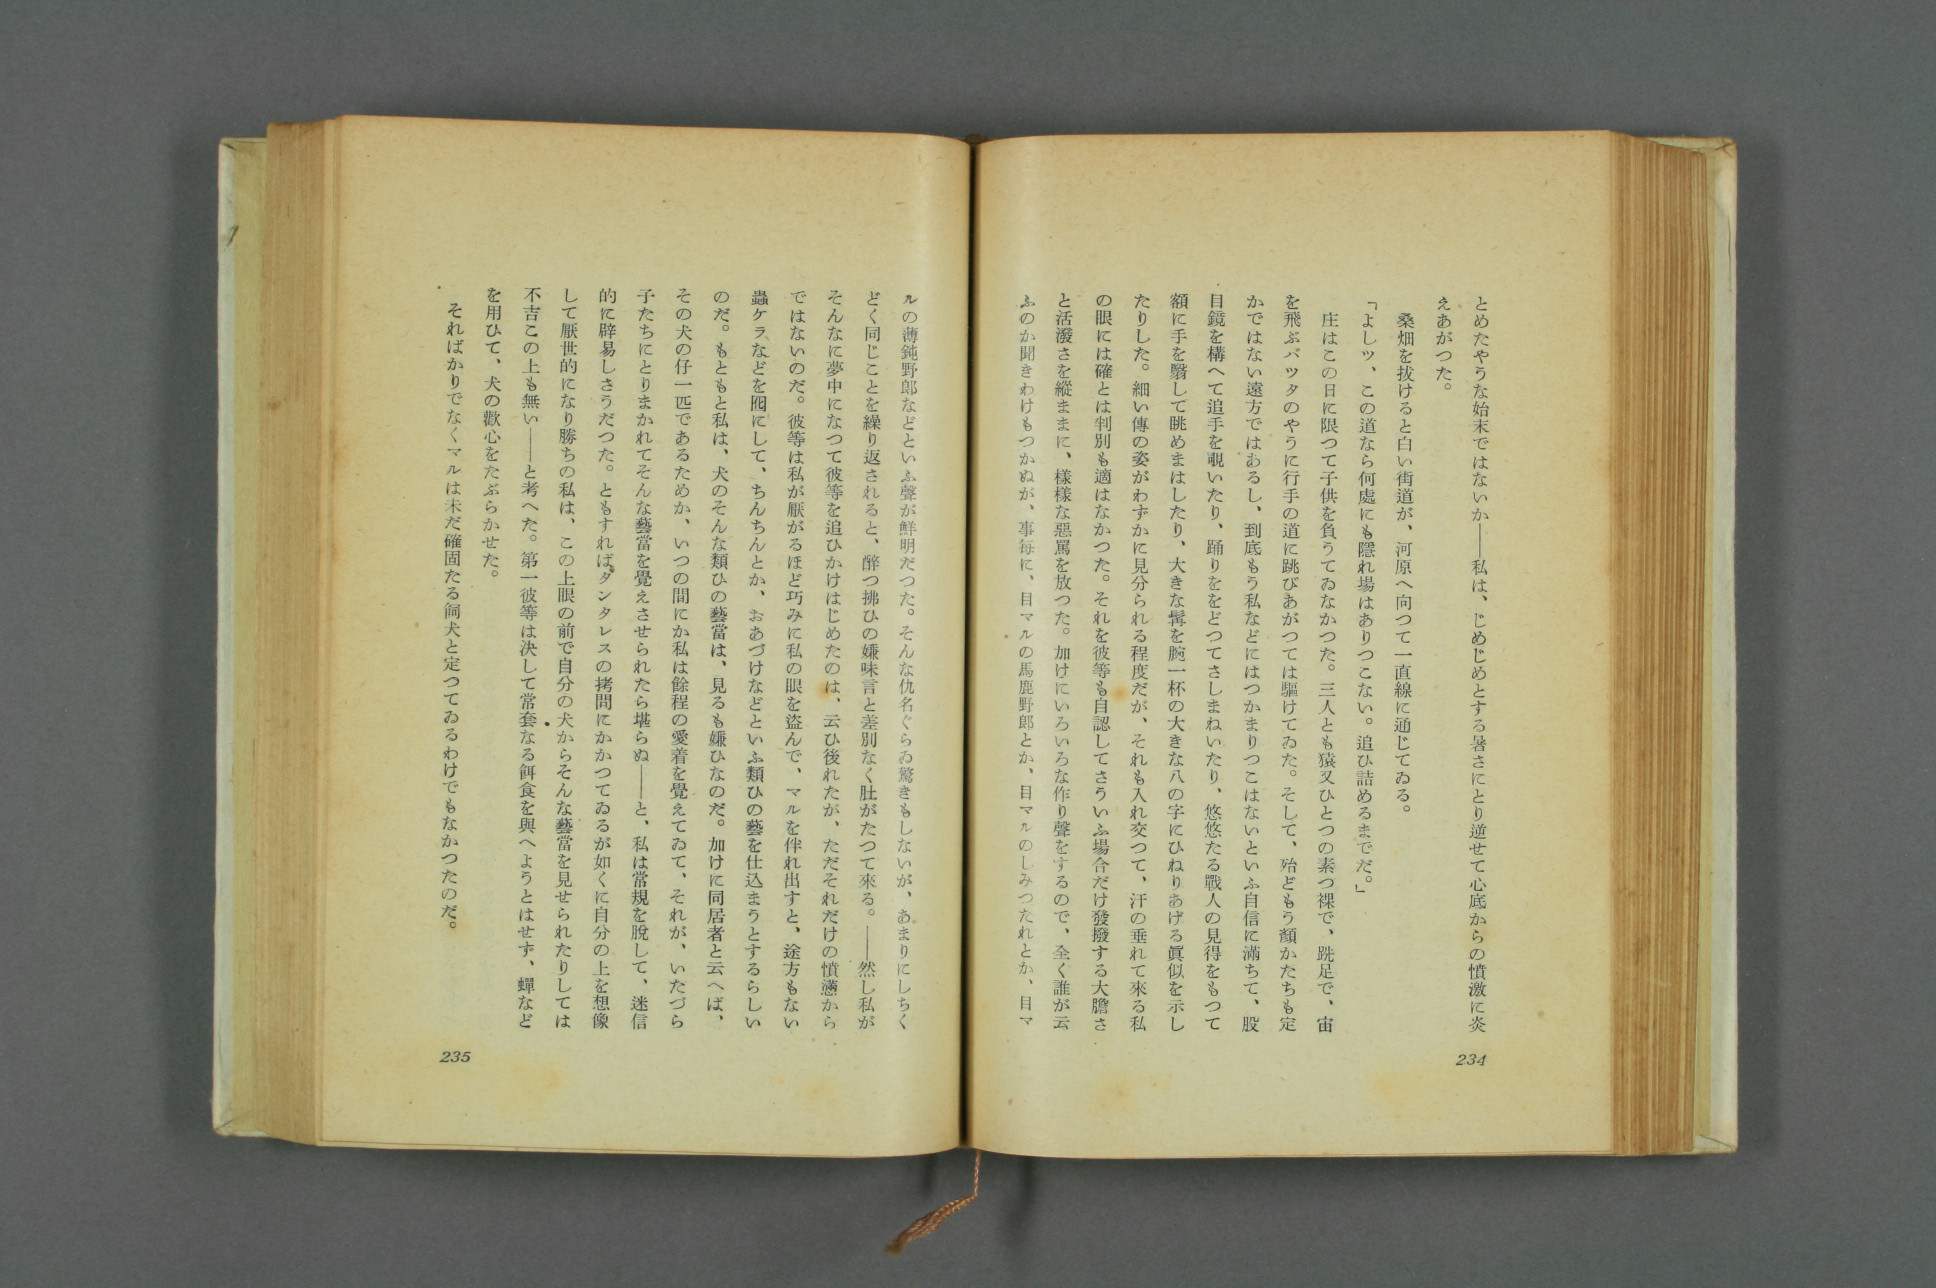 とめたやうな始末ではないか――私は、じめじめとする暑さにとり逆せて心底からの憤激に炎
えあがつた。
桑畑を拔けると白い街道が、河原へ向つて一直線に通じてゐる。
「よしッ、この道なら何處にも隱れ場はありつこない。追ひ詰めるまでだ。」
庄はこの日に限つて子供を負うてゐなかつた。三人とも猿又ひとつの素つ裸で、跣足で、宙
を飛ぶバツタのやうに行手の道に跳びあがつては驅けてゐた。そして、殆ども う顏かたちも定
かではない遠方ではあるし、到底もう私などにはつかまりつこはないといふ自信に滿ちて、股
目鏡を構へて追手を覗いたり、踊りををどつてさしまねいたり、悠悠たる戰人の見得をもつて
額に手を翳して眺めまはしたり、大きな髯を腕一杯の大きな八の字にひねりあげる眞似を示し
たりした。細い傳の姿がわずかに見分られる程度だが、それも入れ交つて、汗の垂れて來る私
の眼には確とは判別も適はなかつた。それを彼等も自認してさういふ場合だけ發撥する大膽さ
と活潑さを縱ままに、樣樣な惡罵を放つた。加けにいろいろな作り聲をするので、全く誰が云
ふのか聞きわけもつかぬが、事每に、目マルの馬鹿野郎とか、目マルのしみつたれとか、目マ
234
ルの薄鈍野郎などといふ聲が鮮明だつた。そんな仇名ぐらゐ驚きもしないが、あまりにしちく
どく同じことを繰り返されると、醉つ拂ひの嫌味言と差別なく肚がたつて來る。――然し私が
そんなに夢中になつて彼等を追ひかけはじめたのは、云ひ後れたが、ただそれだけの憤懣から
ではないのだ。彼等は私が厭がるほど巧みに私の眼を盜んで、マルを伴れ出すと、途方もない
蟲ケラなどを囮にして、ちんちんとか、おあづけなどといふ類ひの藝を仕込まうとするらしい
のだ。もともと私は、犬のそんな類ひの藝當は、見るも嫌ひなのだ。加けに同居者と云へば、
その犬の仔一匹であるためか、いつの間にか私は餘程の愛着を覺えてゐて、それが、いたづら
子たちにとりまかれてそんな藝當を覺えさせられたら堪らぬ――と、私は常規を脫して、迷信
的に辟易しさうだつた。ともすればタンタレスの拷問にかかつてゐるが如くに自分の上を想像
して厭世的になり勝ちの私は、この上眼の前で自分の犬からそんな藝當を見せられたりしては
不吉この上も無い――と考へた。第一彼等は決して常套なる餌食を與へようとはせず、蟬など
を用ひて、犬の歡心をたぶらかせた。
そればかりでなくマルは未だ確固たる飼犬と定つてゐるわけでもなかつたのだ。
235